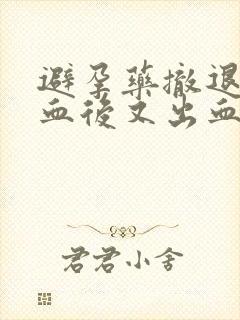 避孕藥撤退
血後又出血
君君小舍